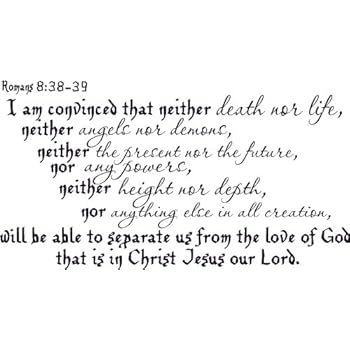 Romans 8:38-39
I am convinced that neither death nor life,
neither angels nor demons,
neither the present nor the future,
nor any powers,
neither height nor depth,
nor anything else in all creation,
will be able to separate us from the love of God
that is in Christ Jesus our Lord.